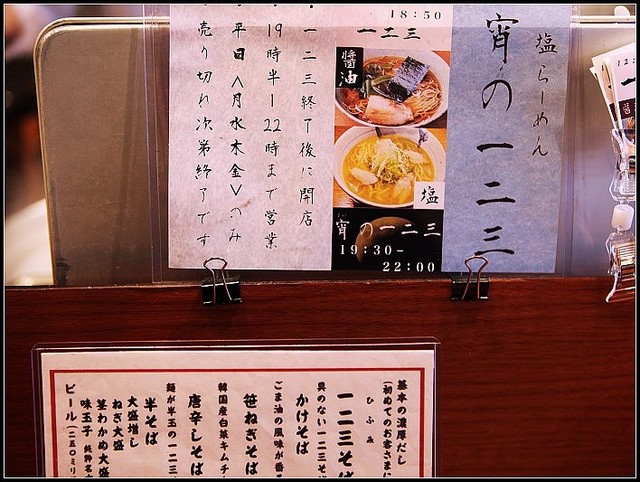 塩らーめん
宵の一二三
18:50
一二三
醤油
塩
宵の一二三
19:30-
22:00
一二三終了後に開店
19時半ー22時まで営業
平日<月水木金>のみ
売り切れ次第終了です
基本の濃厚だし
(初めてのお客さまに
ひふみ
一二三そば
具のない一二三そ
かけそば
ごま油の風味が香
笹ねぎそば
韓国産白菜キムチ
唐辛しそば
麺が半玉の一二三
半そば
大盛増し
ねぎ大盛
茎わかめ大盛
味玉子 純粋名古
ビール(二五〇ミリ